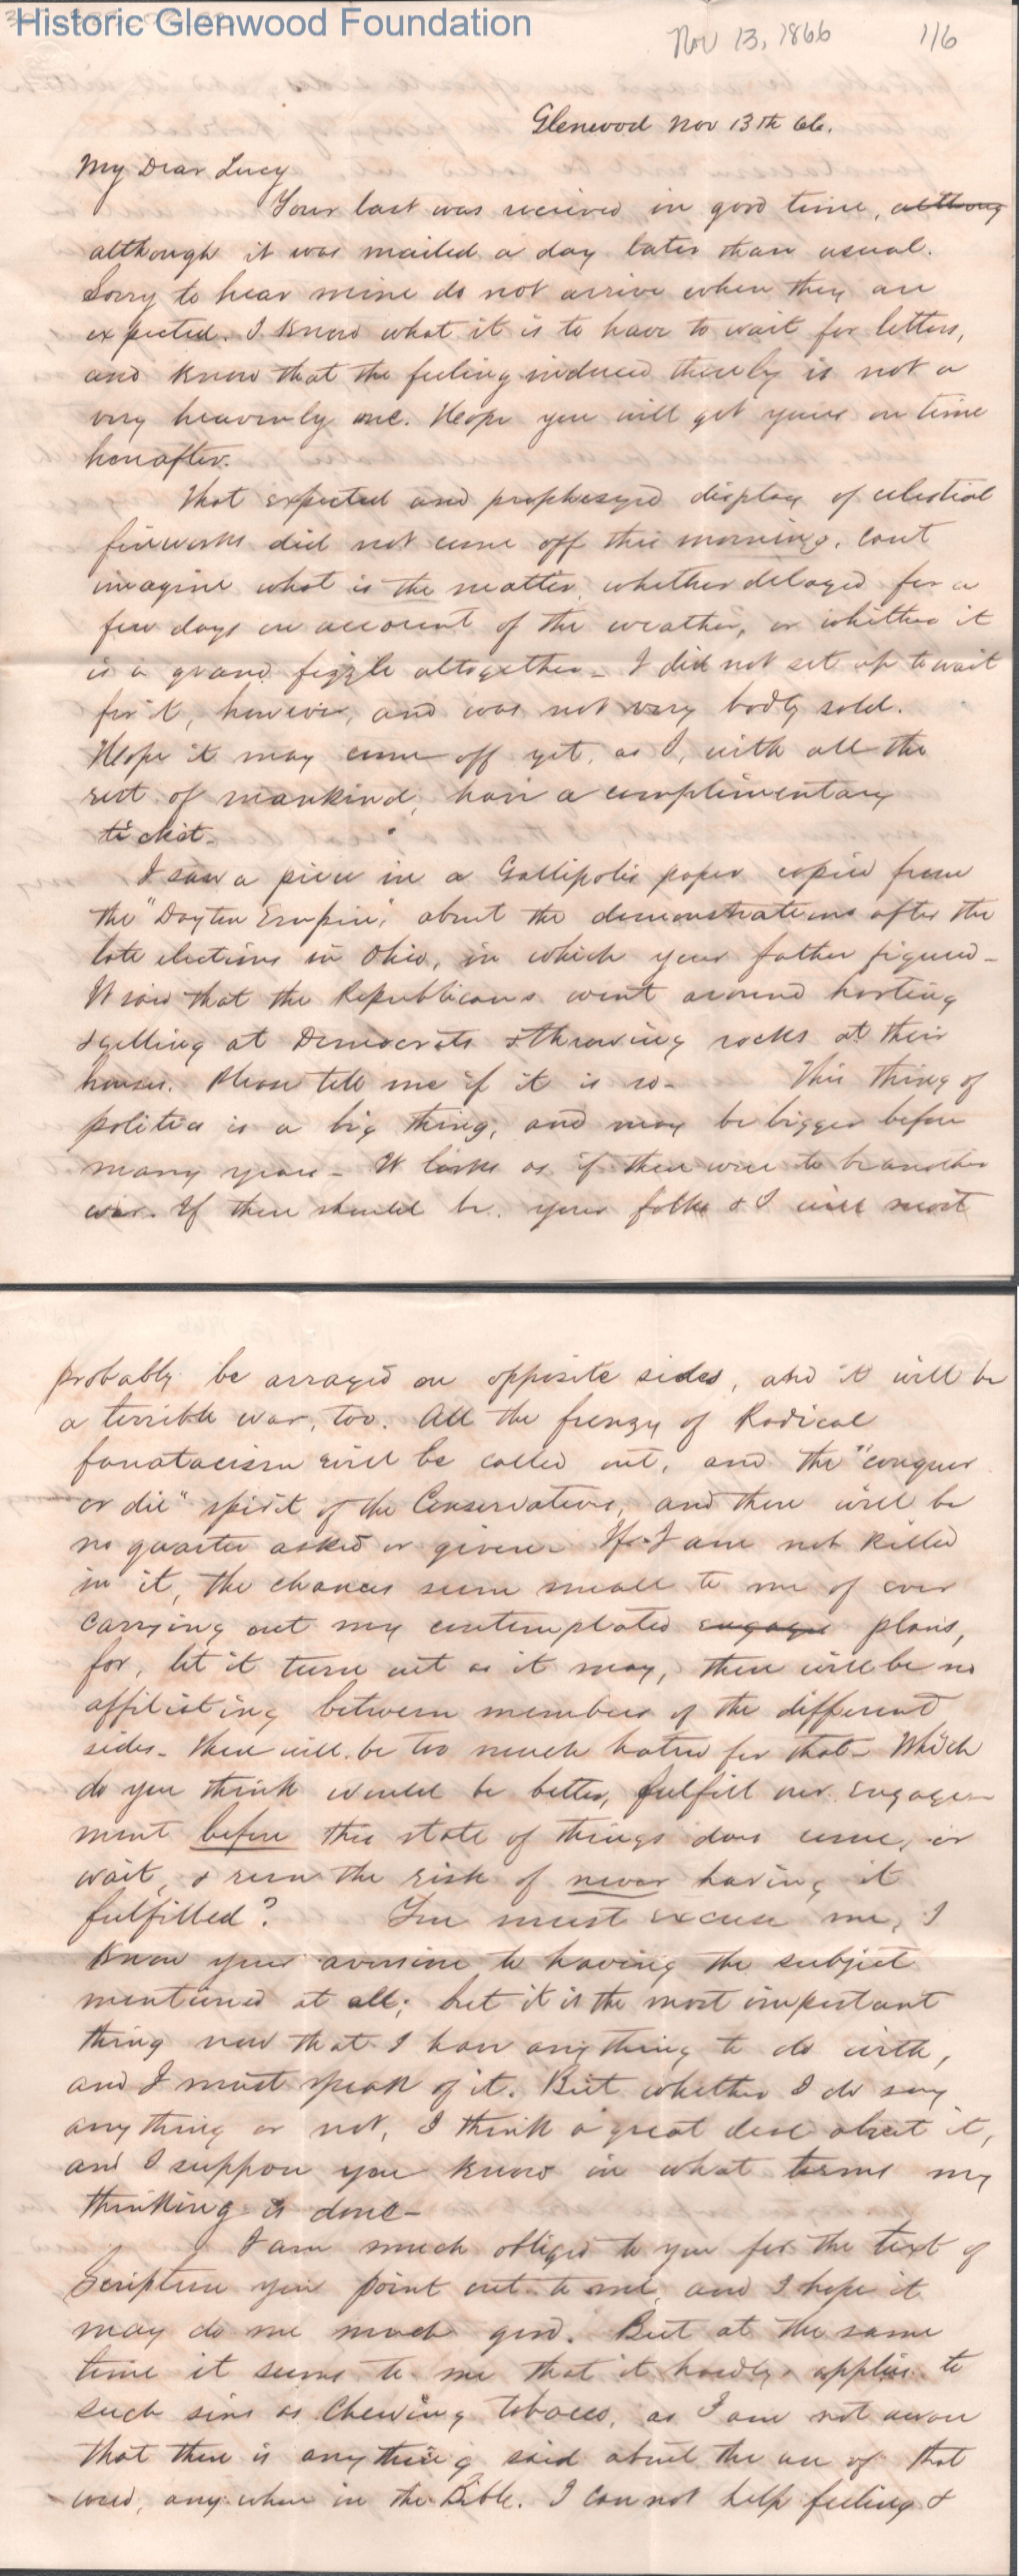 Historic Glenwood Foundation
Nov 13, 1866 1/6
Glenwood Nov 13th 66.
My Dear Lucy
Your last was recieved in good time, althoug
although it was mailed a day later than usual.
Sorry to hear mine do not arrive when they are
expected. I know what it is to have to wait for letters,
and know that the feeling induced thereby is not a
very heavenly one. Hope you will get yours on time
hereafter.
That expected and prophesyed display of celestial
fireworks did not come off this morning. Cant
imagine what is the matter, whether delayed for a
few days on account of the weather, or whether it
is a grand fizzle altogether - I did not set up to wait
for it, however, and was not very badly sold.
Hope it may come off yet, as I, with all the
rest of mankind, have a complimentary
ticket.
I saw a piece in a Gallipolis paper copied from
the "Dayton Empire", about the demonstrations after the
late elections in Ohio, in which your father figured -
It said that the Republicans went around hooting
& yelling at Democrats & throwing rocks at their
houses. Please tell me if it is so - This thing of
politics is a big thing, and may be bigger before
many years - It looks as if there were to be another
war. If there should be, your folks & I will most
probably be arrayed on opposite sides, and it will be
a terrible war, too. All the frenzy of Radical
fanatacism will be called out, and the "conquer
or die" spirit of the Conservative, and there will be
no quarter asked or given - If I am not killed
in it, the chances seem small to me of ever
carrying out my contemplated engage plans,
for, let it turn out as it may, there will be no
affiliating between members of the different
sides - there will be too much hatred for that - Which
do you think would be better, fulfill our engage-
ment before this state of things does come, or
wait, & run the risk of never having it
fulfilled? You must excuse me, I
know your aversion to having the subject
mentioned at all; but it is the most important
thing now that I have any thing to do with,
and I must speak of it. But whether I do say
any thing or not, I think a great deal about it,
and I suppose you know in what terms my
thinking is done -
I am much obliged to you for the text of
Scripture you point out to me, and I hope it
may do me much good. But at the same
time it seems to me that it hardly applies to
such sins as Chewing tobacco, as I am not aware
that there is anything said about the use of that
weed, any where in the Bible. I can not help feeling &